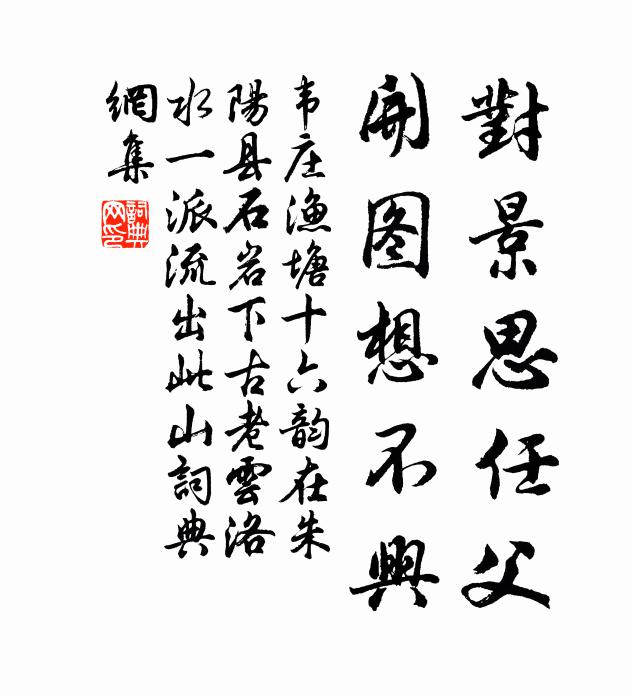 對景思任父
開图想不興
韦庄漁塘十六韵在朱
陽县石岩下古老雲洛
水一派流出此山詞典
網集
詞典网印